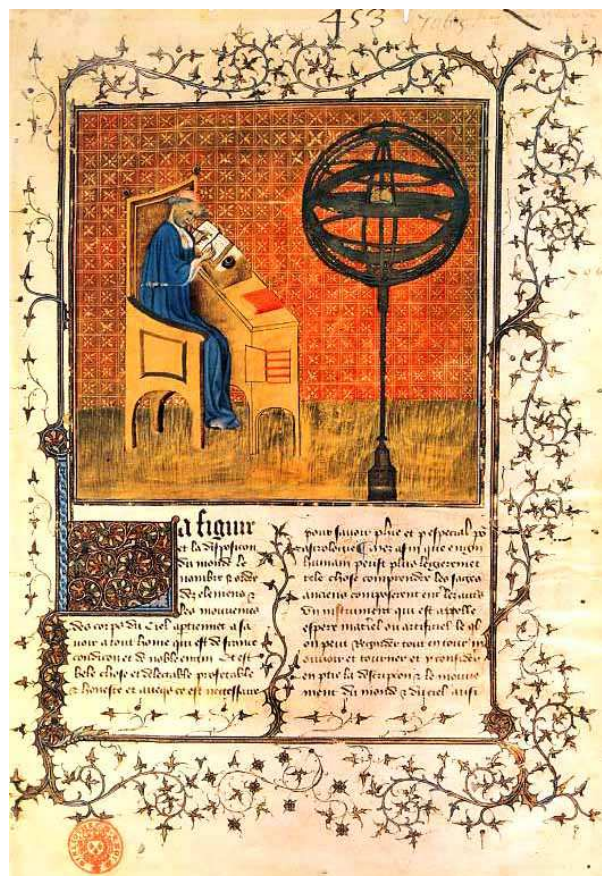 453
a figure
et la disposicion
du monde le
nombre & orde
des elemens &
les mouvemens
des corps du ciel aptienent a sa
voir a tout home qui est de france
condicion et de noble engin Et est
bele chose et delectable profetable
& honeste et avecqs ce est necessaire
pour savoir phie et p especial po
astrologie car afin que engin
humain peust plus legierement
tele chose comprendre les sages
anciens composerent
un instrument qui est appelle
espere materiel ou artificiel le ql
on peut regarder tout entour
mouvoir et tourner et considerer
en ptie la descripcion & le mouve
ment du monde & du ciel aussi